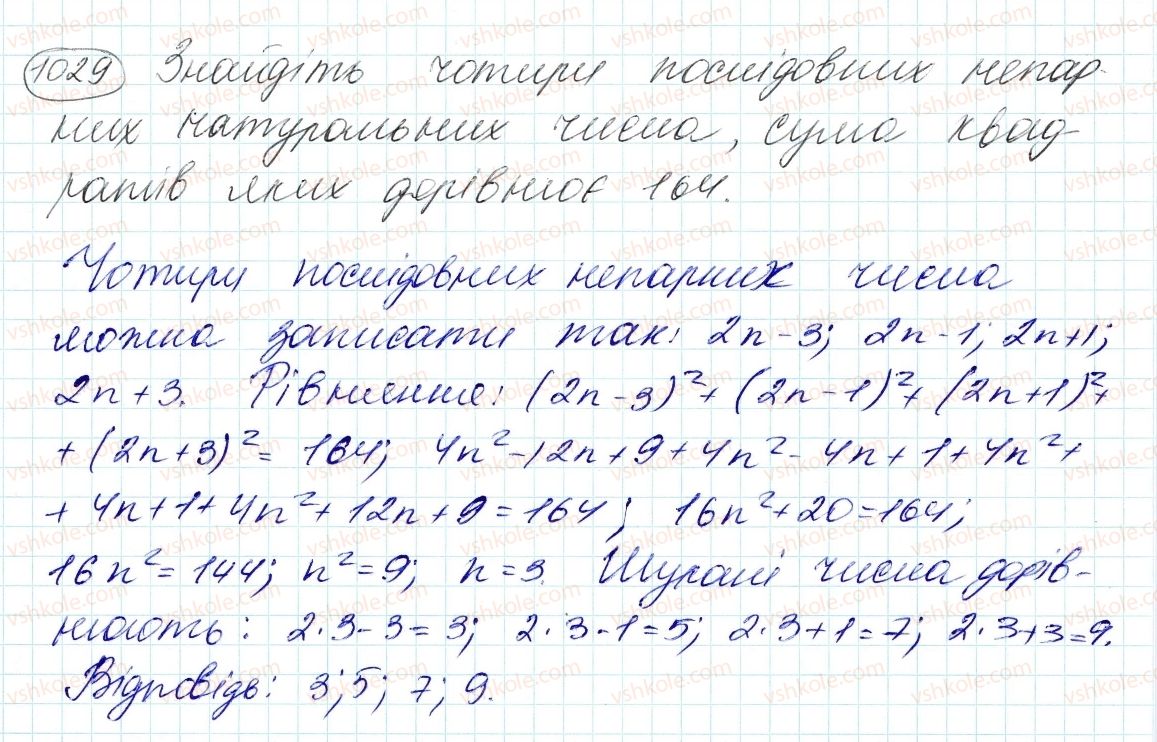 1029 Знайдіть чотири послідовних непар-
них натуральних числа, сума квад-
ратів яких дорівнює 164.
Чотири послідовних непарних числа
можна записати так: 2n-3; 2n-1; 2n+1;
2n+3. Рівняння: (2n-3)²+(2n-1)²+(2n+1)²+
+(2n+3)²=164; 4n²-12n+9+4n²-4n+1+4n²+
+4n+1+4n²+12n+9=164; 16n²+20=164;
16n²=144; n²=9; n=3. Шукані числа дорів-
нюють: 2·3-3=3; 2·3-1=5; 2·3+1=7; 2·3+3=9.
Відповідь: 3; 5; 7; 9.